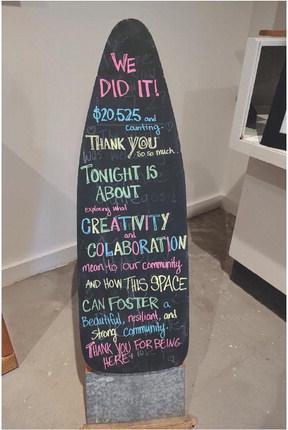 WE
DID IT!
$20,525 and
counting...
THANK YOU
so so much...
TONIGHT IS
ABOUT
exploring what
CREATIVITY
and
COLABORATION
mean to our community
AND HOW THIS SPACE
CAN FOSTER a
Beautiful, resilient, and
strong community.
THANK YOU FOR BEING
HERE